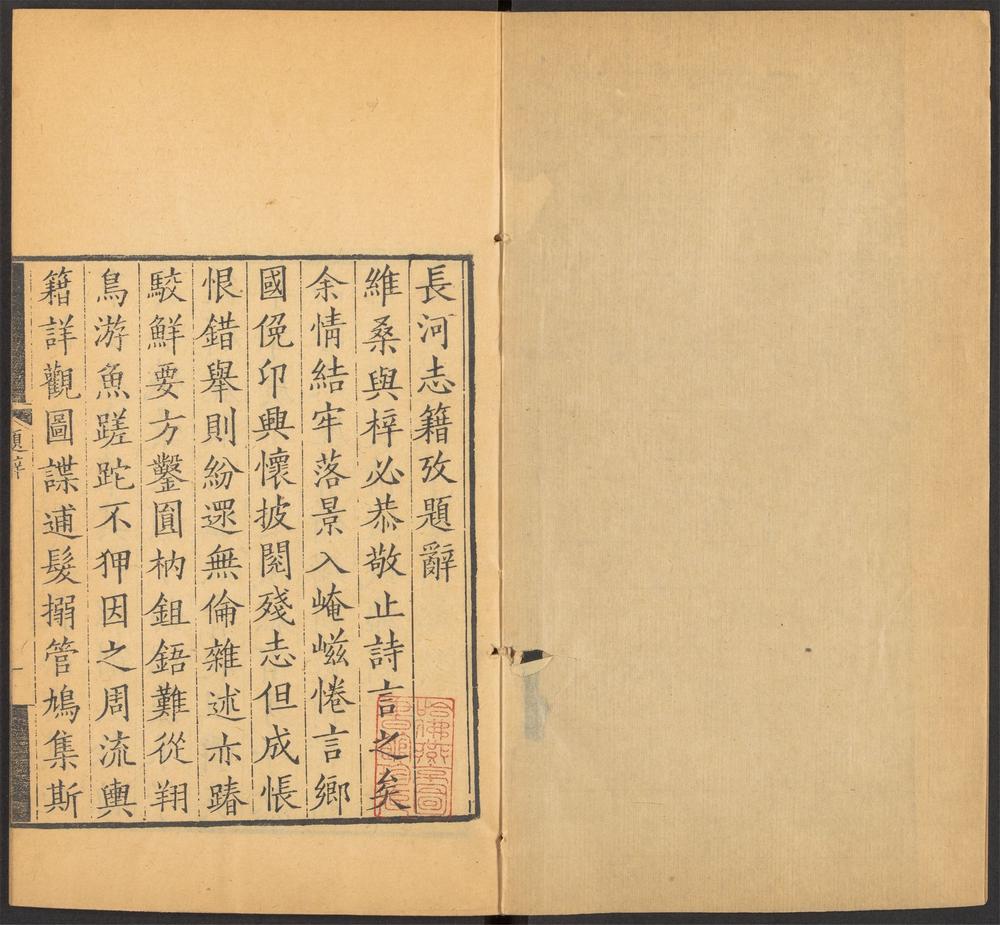 長河志籍攷題辭
維桑與梓必恭敬止詩言之矣
余情結牢落景入崦嵫惓言鄉
國俛卬興懷披閱殘志但成悵
恨錯舉則紛遝無倫雜述亦踳
駮鮮要方鑿圓枘鉏鋙難從翔
鳥游魚蹉跎不狎因之周流輿
籍詳觀圖諜逋髮搦管鳩集斯
題辭
一
哈佛燕京圖